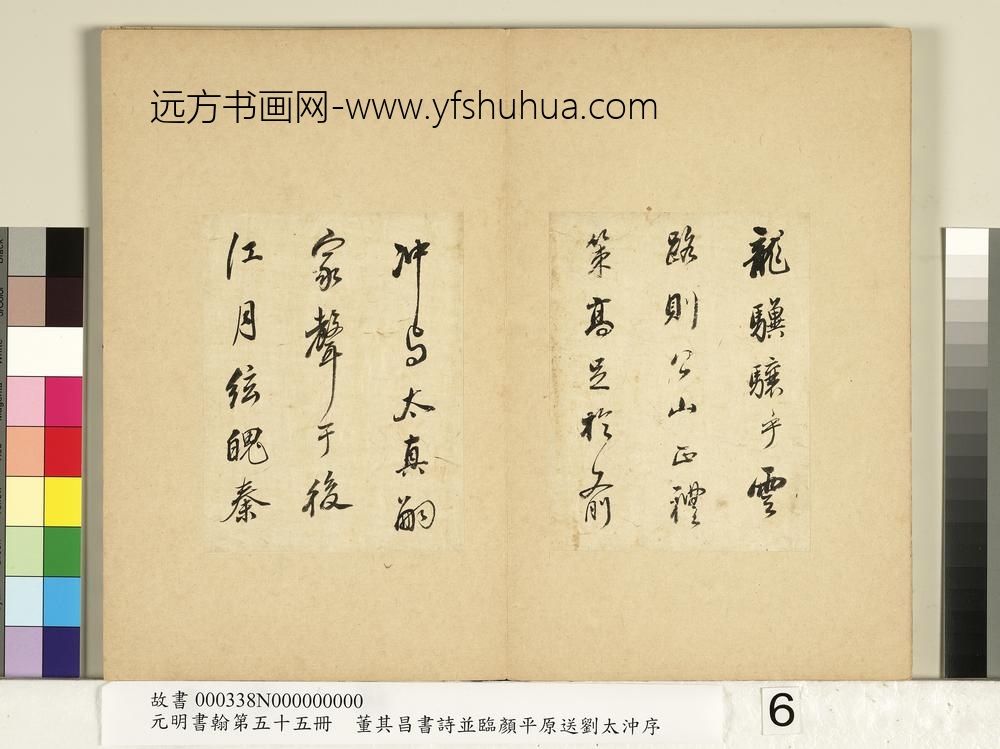 远方书画网-www.yfshuhua.com
龍驥驤乎雲
路則公山正禮
策高足於前
沖与太真嗣
家聲于後
江月絃魄秦
故書 000338N000000000
元明書翰第五十五冊 董其昌書詩並臨顏平原送劉太沖序
6